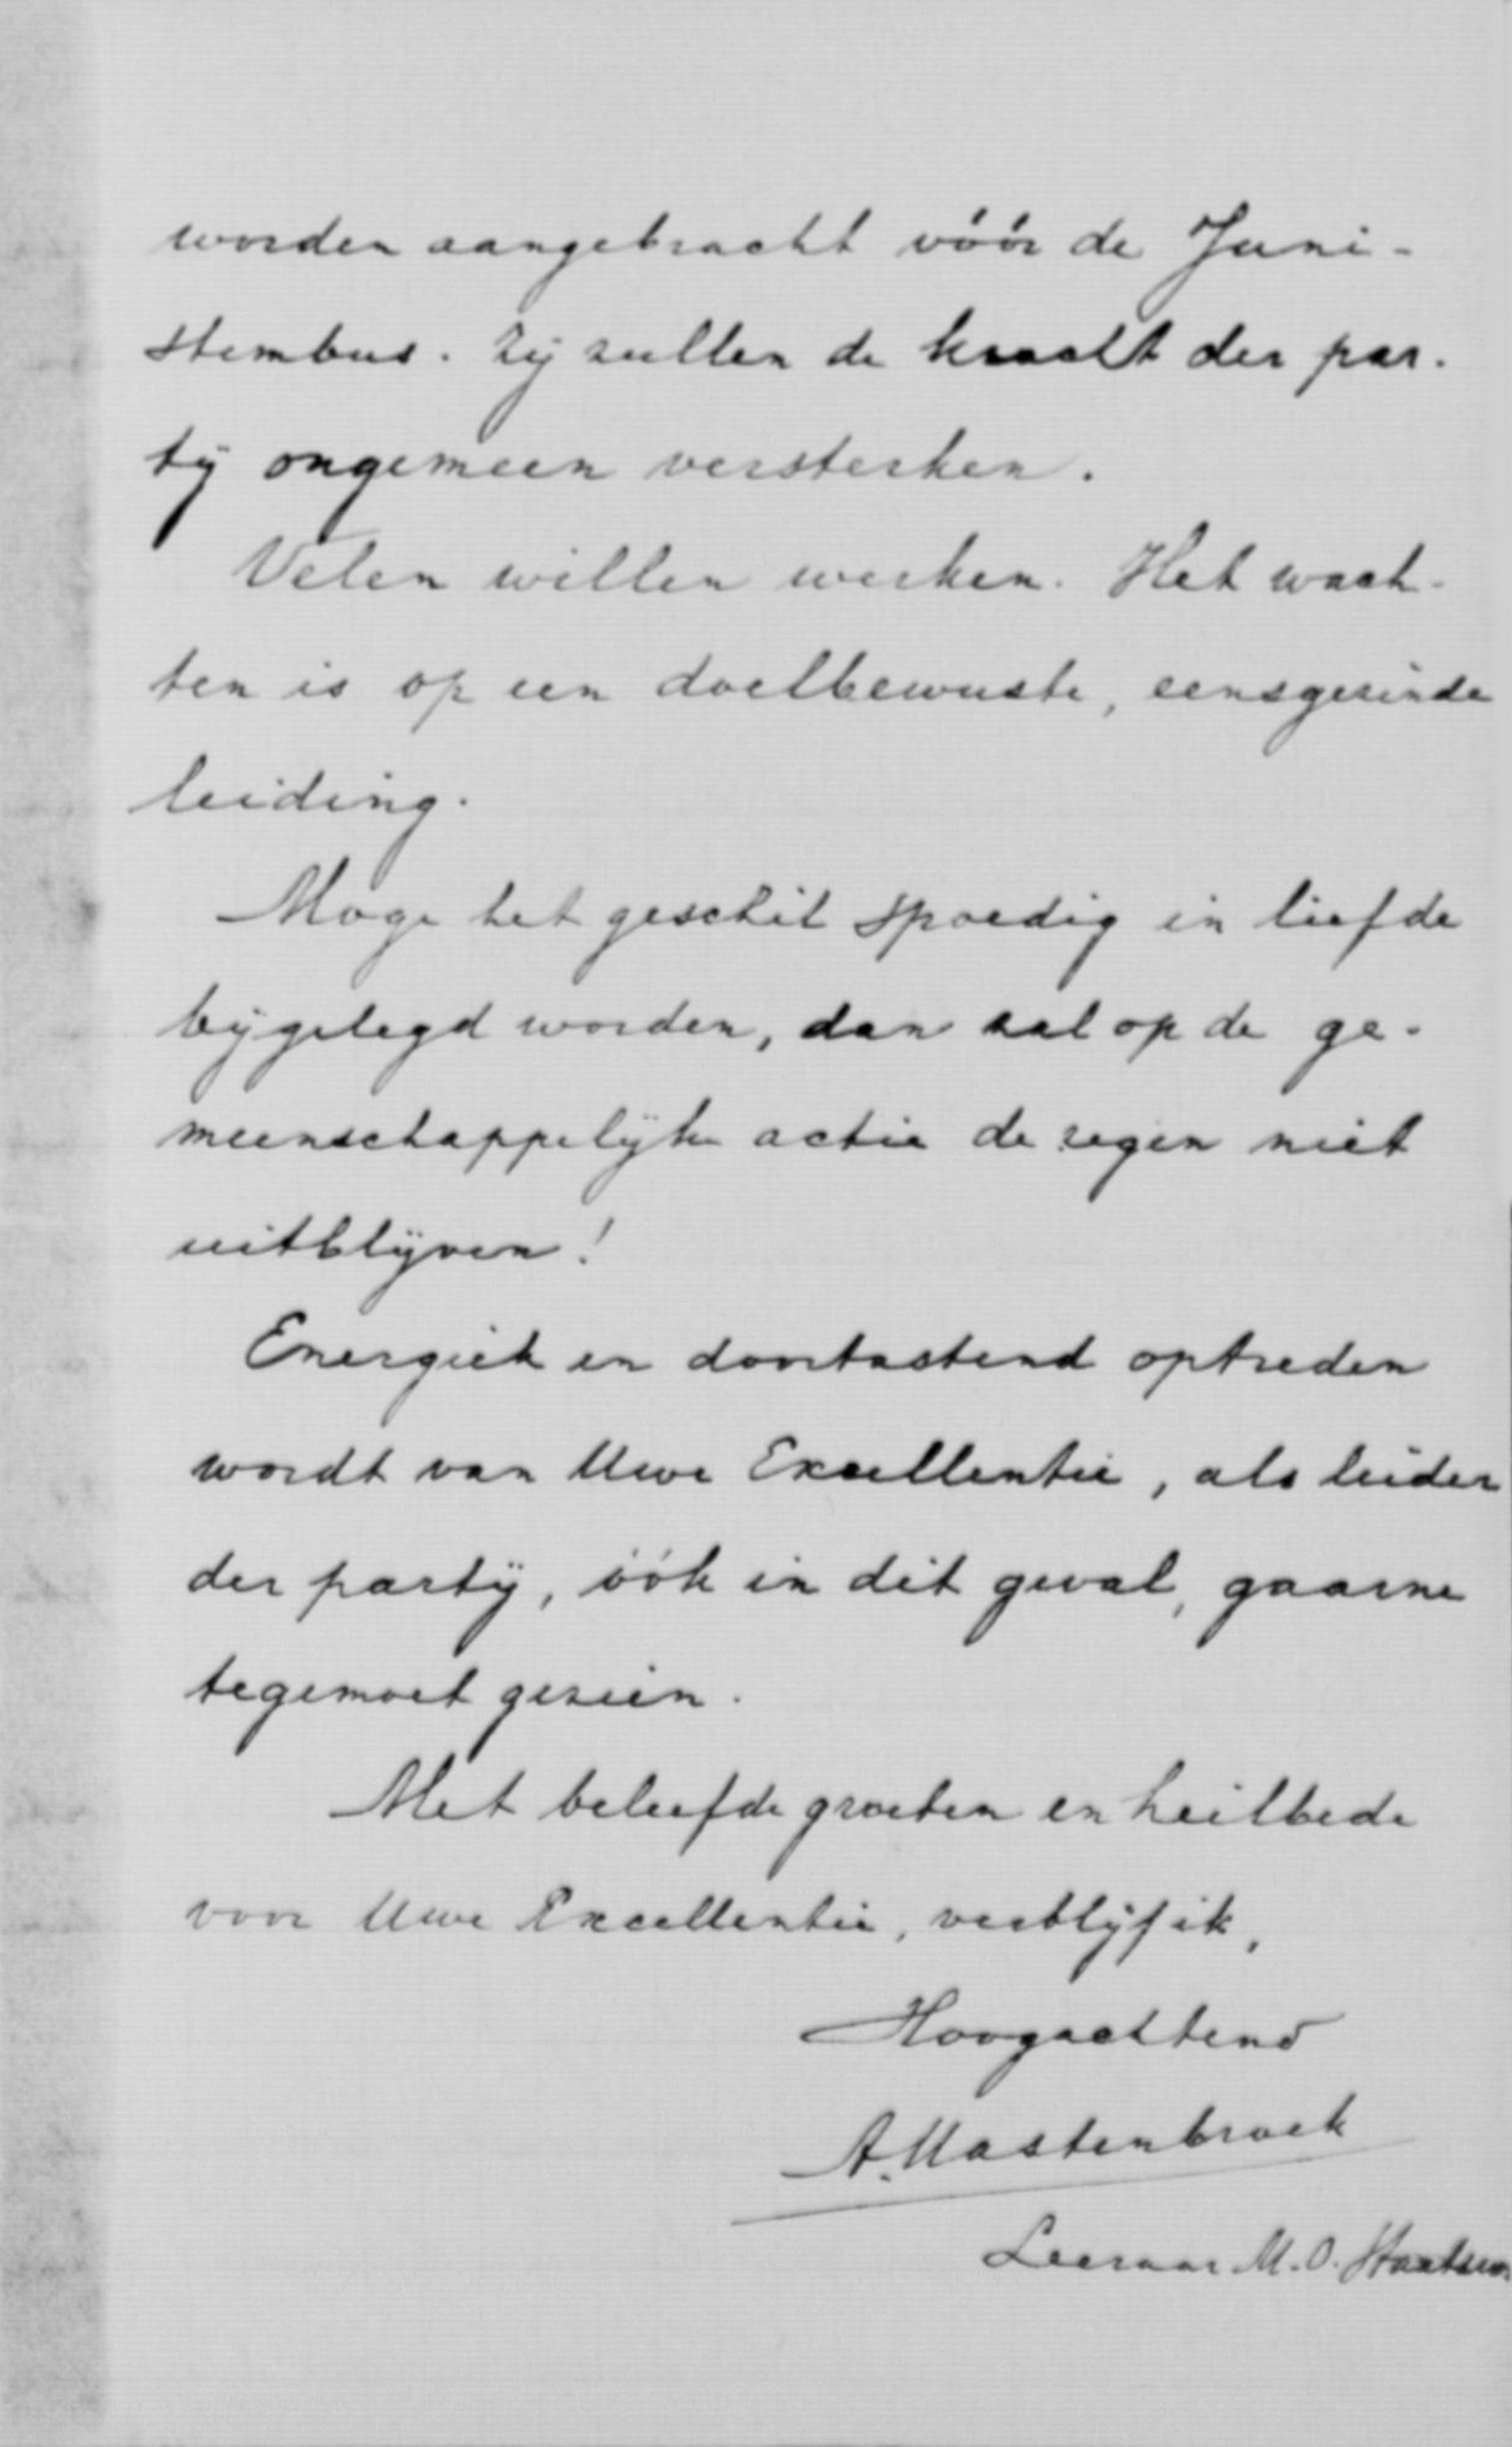 worden aangebracht vóór de Juni-
stembus. Zij zullen de kracht der par-
tij ongemeen versterken.
Velen willen werken. Het wach-
ten is op een doelbewuste, eensgezinde
leiding.
Moge het geschil spoedig in liefde
bijgelegd worden, dan zal op de ge-
meenschappelijke actie de zegen niet
uitblijven!
Energiek en doortastend optreden
wordt van Uwe Excellentie, als leider
der partij, óók in dit geval, gaarne
tegemoet gezien.
Met beleefde groeten en heilbede
voor Uwe Excellentie, verblijf ik,
Hoogachtend
A. Mastenbroek
Leeraar M.O. Staatsw.